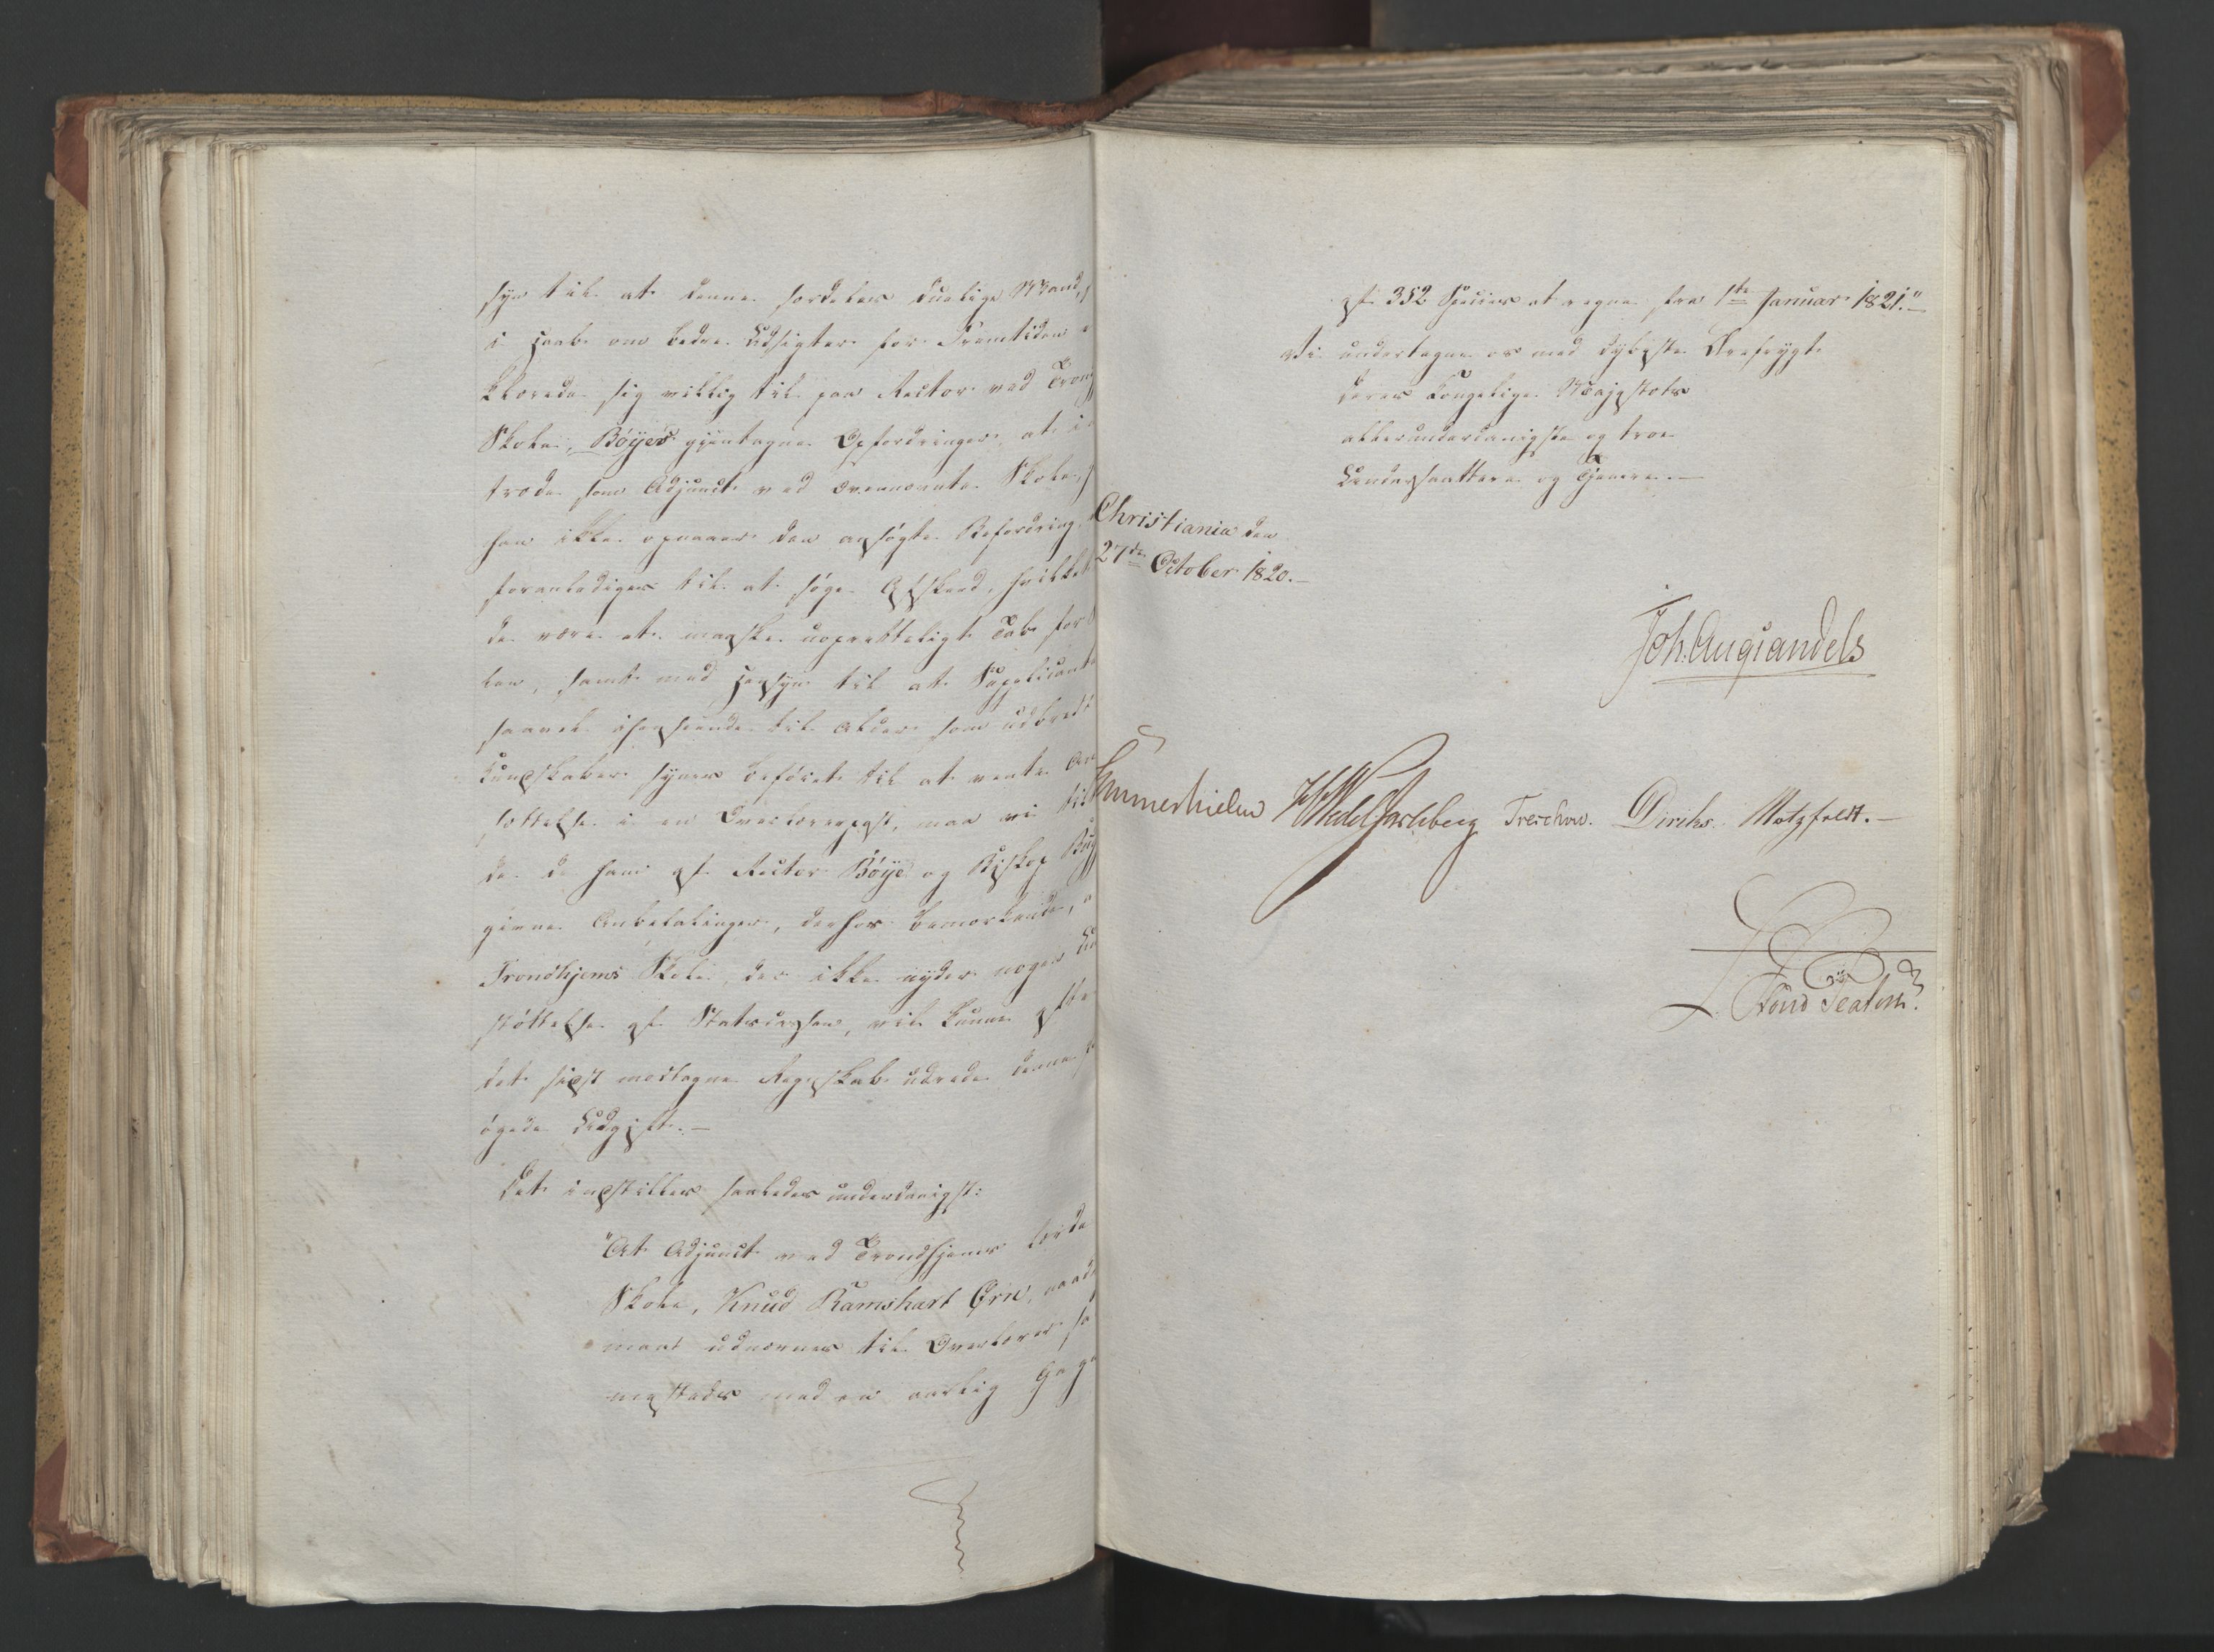 syn til at denne særdeles duelige Mand,
i Haab om bedre Udsigter for Fremtiden
klærede sig villig til paa Rector ved Trond
Skole, Böyes gjentagne Opfordringer at
træde som Adjunct ved ovennævnte Skole,
han ikke opnaaer den ansögte Befordring
foranlediges til at söge Afskeed, hvilket
de være et maaske uopretteligt Tab for
len, samt med Hensyn til at Supplicanten
saavel i Henseende til Alder som udbredte
Kundskaber synes beföiet til at vente An
sættelse i en Overlærerpost, maa vi til
de de ham af Rector Böye og Biskop Bug
givne Anbefalinger, derhos bemærkende,
Trondhjems Skole, der ikke nyder nogen Un
støttelse af Statscassen, vil kunne efter
det sidst modtagne Regnskab udrede denne
ögede Udgift.—
Det indstilles saaledes underdanigst:
"At Adjunct ved Trondhjems lærde
Skole, Knud Ramshart Örn, naadi
maae udnævnes til Overlærer sa
mesteds med en aarlig Gage
af 352 Species at regne fra 1ste Januar 1821."—
Vi undertegne os med dybeste Ærefrygt
Deres Kongelige Majestæts
allerunderdanigste og troe
Undersaatter og Tjenere.—
Christiania den
27de October 1820.—
Joh. Aug Sandels
Sommerhielm HWedel Jarlsberg Treschow. Diriks. Motzfeldt.—